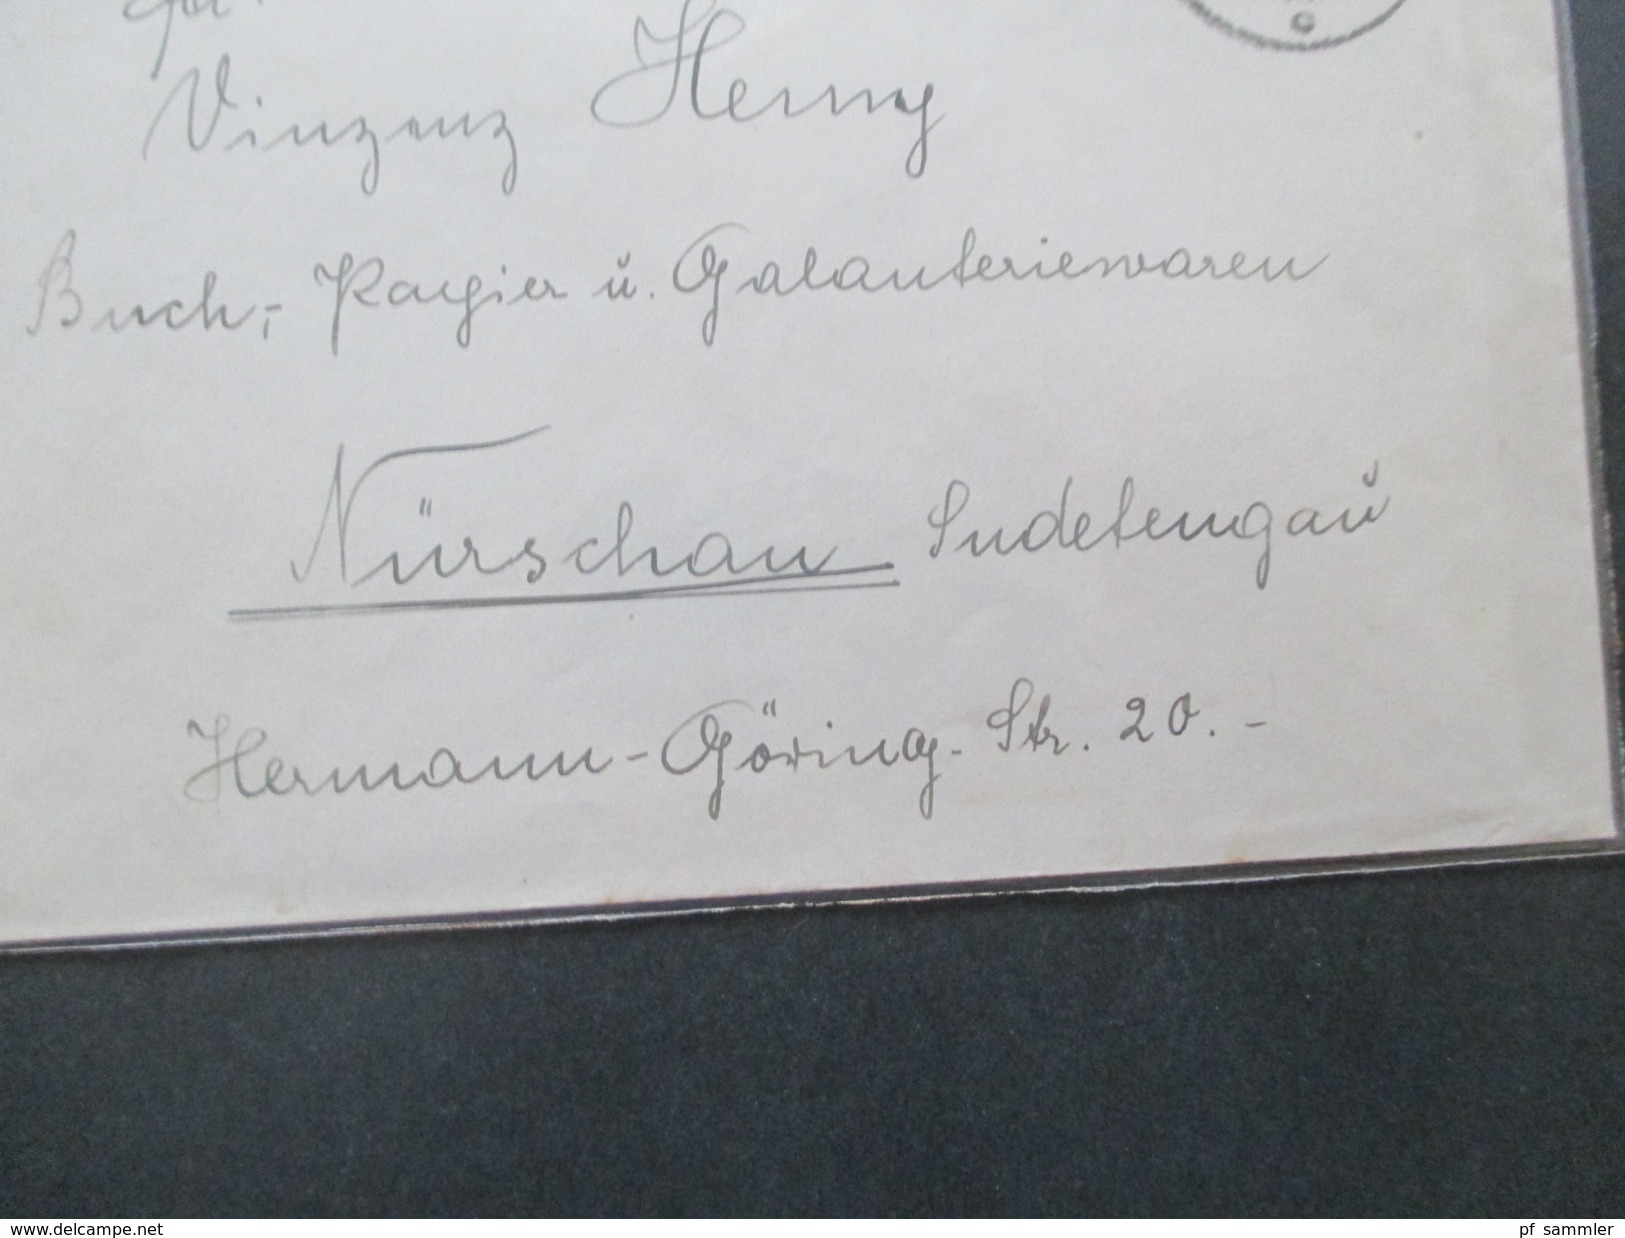 Vinzenz Henny
Buch-, Papier u. Galanteriewaren
Nürschau Sudetengau
Hermann-Göring-Str. 20.-
www.delcampe.net
pf_sammler